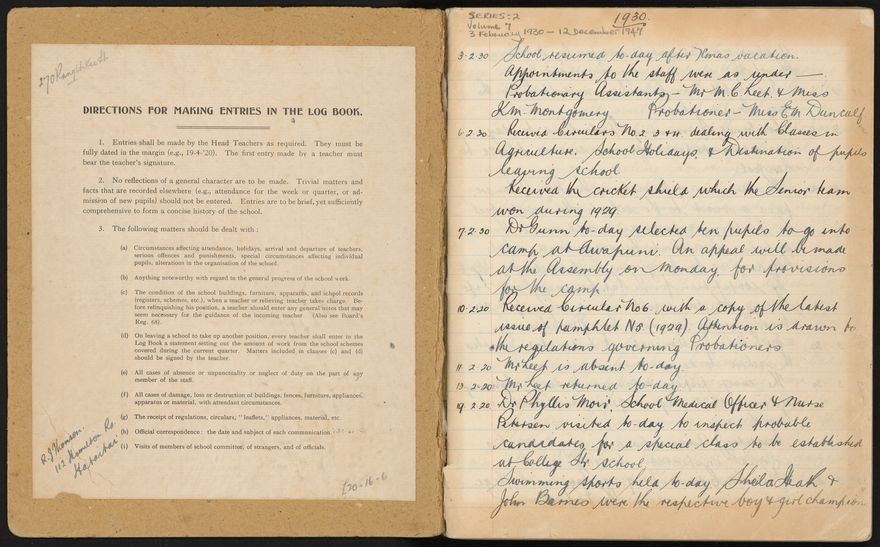 DIRECTIONS FOR MAKING ENTRIES IN THE LOG BOOK.
1. Entries shall be made by the Head Teachers as required. They must be
fully dated in the margin (e.g., 19-4-'20). The first entry made by a teacher must
bear the teacher's signature.
2. No reflections of a general character are to be made. Trivial matters and
facts that are recorded elsewhere (e.g., attendance for the week or quarter, or ad-
mission of new pupils) should not be entered. Entries are to be brief, yet sufficiently
comprehensive to form a concise history of the school.
3. The following matters should be dealt with:
(a) Circumstances affecting attendance, holidays, arrival and departure of teachers,
serious offences and punishments, special circumstances affecting individual
pupils, alterations in the organisation of the school.
(b) Anything noteworthy with regard to the general progress of the school work.
(c) The condition of the school buildings, furniture, apparatus, and school records
(registers, schemes, etc.), when a teacher or relieving teacher takes charge. Be-
fore relinquishing his position, a teacher should enter any general notes that may
seem necessary for the guidance of the incoming teacher. (Also see Board's
Reg. 68).
(d) On leaving a school to take up another position, every teacher shall enter in the
Log Book a statement setting out the amount of work from the school schemes
covered during the current quarter. Matters included in clauses (c) and (d)
should be signed by the teacher.
(e) All cases of absence or unpunctuality or neglect of duty on the part of any
member of the staff.
(f) All cases of damage, loss or destruction of buildings, fences, furniture, appliances,
apparatus or material, with attendant circumstances.
(g) The receipt of regulations, circulars, "leaflets," appliances, material, etc.
(h) Official correspondence: the date and subject of each communication.
(i) Visits of members of school committee, of strangers, and of officials.
R. J. Thomson.
112
£20-16-6
SERIES: 2
Volume 7
3 February 1930 — 12 December 1947
1930.
3.2.30 School resumed to-day after Xmas vacation.
Appointments to the staff were as under —
Probationary Assistants — Mr M. C. Leet. & Miss
K.M. Montgomery Probationer — Miss E.M. Duncalf
6.2.30 Received Circulars No. 2, 3 & 4. dealing with Classes in
Agriculture. School Holidays, & Destination of pupils
leaving school
Received the cricket shield which the Senior team
won during 1929.
7.2.30 Dr Gunn to-day selected ten pupils to go into
camp at Awapuni. An appeal will be made
at the Assembly on Monday for provisions
for the camp.
10.2.30 Received Circular No 6. with a copy of the latest
issue of pamphlet No 5 (1929) Attention is drawn to
the regulations governing Probationers.
11.2.30 Mr Leet is absent to-day.
13.2.30 Mr Leet returned to-day
19.2.30 Dr Phyllis Moir, School Medical Officer & Nurse
Petersen visited to-day to inspect probable
candidates for a special class to be established
at College St. school.
Swimming sports held to-day. Sheila Heath &
John Barnes were the respective boy & girl champion